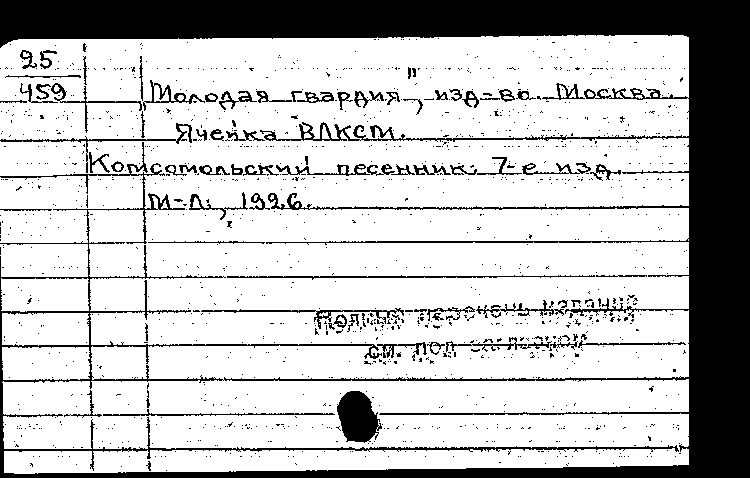 25
459
„Молодая гвардия", изд-во. Москва.
Ячейка ВЛКСМ.
Комсомольский песенник. 7-е изд.
М-Л., 1926.
Полный перечень изданий
см. под заглавием